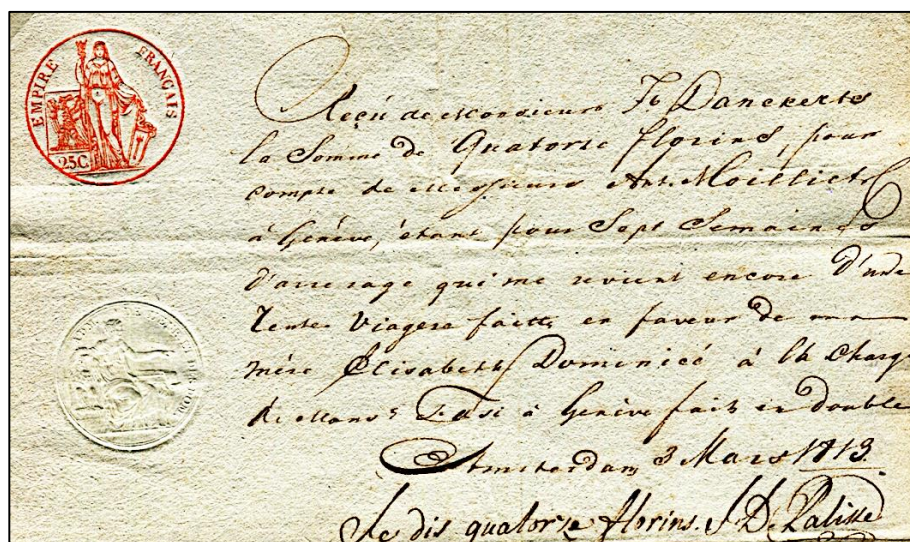 EMPIRE FRANÇAIS
25C
Reçû de Monsieur Danckerts
la Somme de Quatorze florins, pour
compte de Messieurs Ant. Moilliet
à Genève, étant pour Sept Semaines
d'arrerage qui me revient encore d'une
Rente Viagere faitte en faveur de ma
mère Elisabeth Dominicé à la Charge
de Mons.r à Genève fait en double
Amsterdam 3 Mars 1813
Je dis quatorze florins.